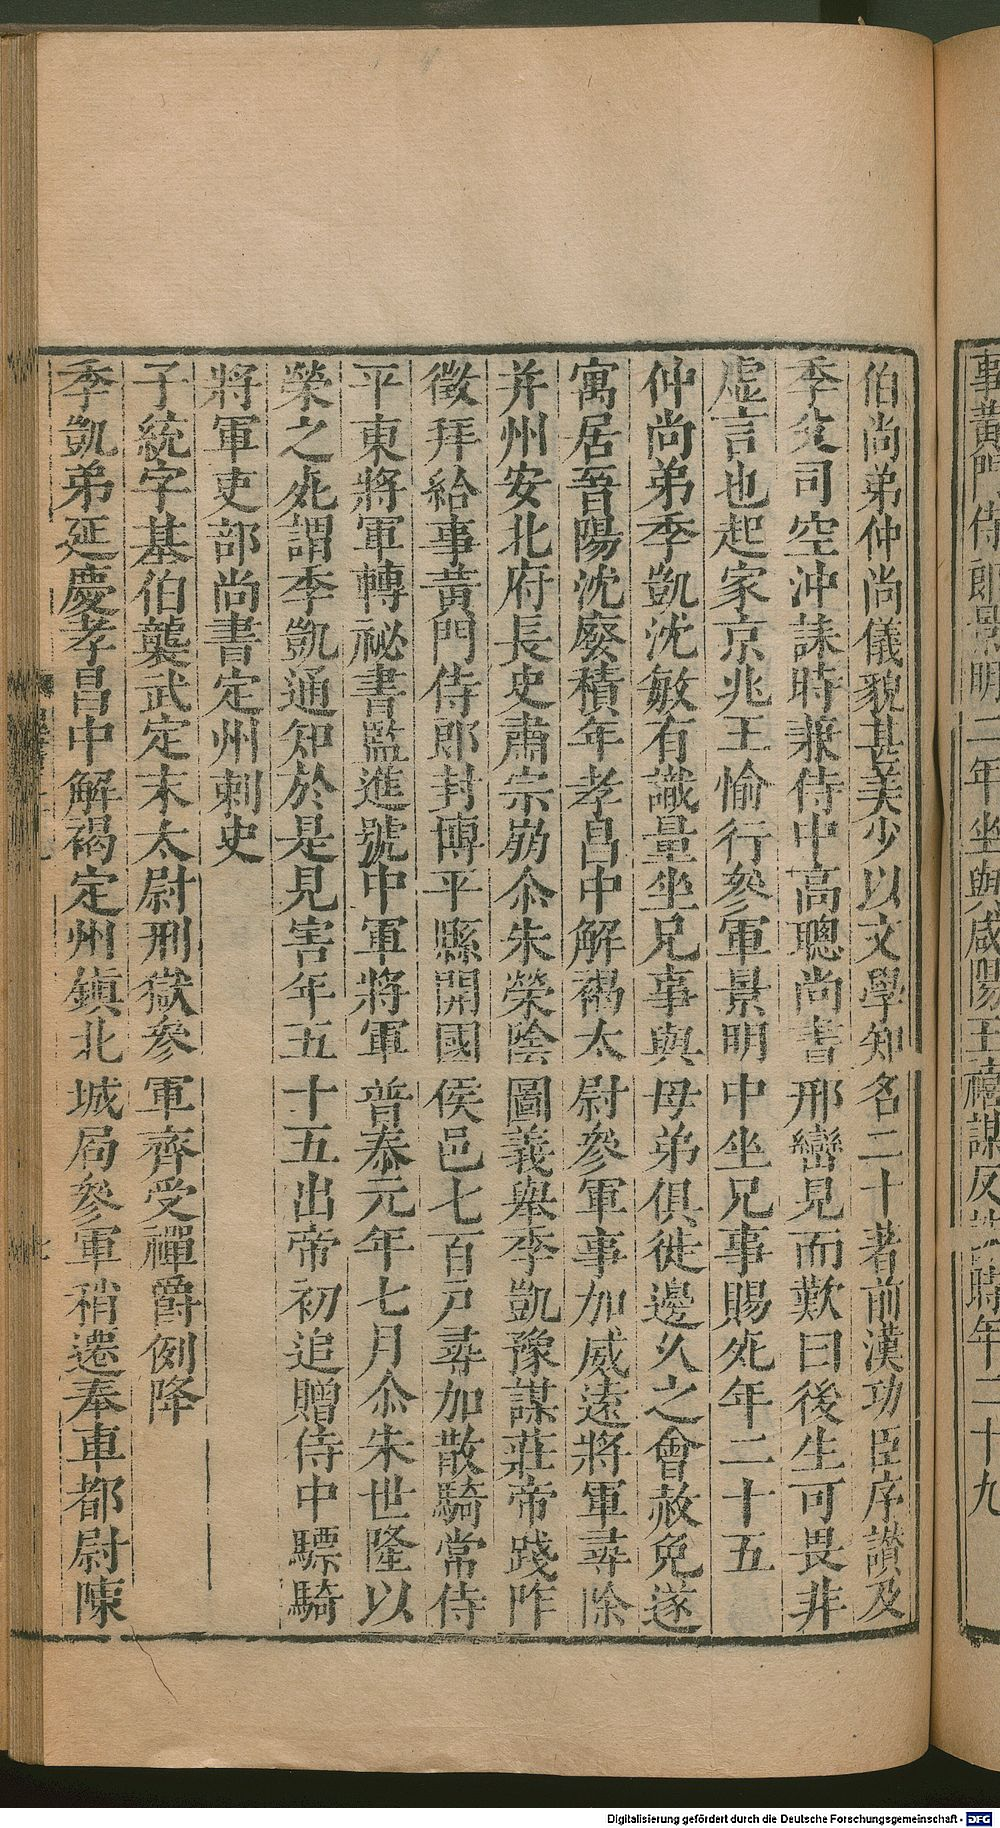 事黃門侍郎景明二年坐與咸陽王禧謀反時年二十九
伯尚弟仲尚儀貌甚美少以文學知名二十著前漢功臣序讃及
季父司空沖誄時兼侍中高聰尚書邢巒見而歎曰後生可畏非
虛言也起家京兆王愉行參軍景明中坐兄事賜死年二十五
仲尚弟季凱沈敏有識量坐兄事與母弟俱徙邊久之會赦免遂
寓居晉陽沈廢積年孝昌中解褐太尉參軍事加威遠將軍尋除
并州安北府長史肅宗崩尒朱榮陰圖義舉季凱豫謀莊帝踐阼
徵拜給事黃門侍郎封博平縣開國侯邑七百戸尋加散騎常侍
平東將軍轉祕書監進號中軍將軍普泰元年七月尒朱世隆以
榮之死謂季凱通知於是見害年五十五出帝初追贈侍中驃騎
將軍吏部尚書定州刺史
子統字基伯襲武定末太尉刑獄參軍齊受禪爵例降
季凱弟延慶孝昌中解褐定州鎮北城局參軍稍遷奉車都尉陳
Digitalisierung gefördert durch die Deutsche Forschungsgemeinschaft - DFG